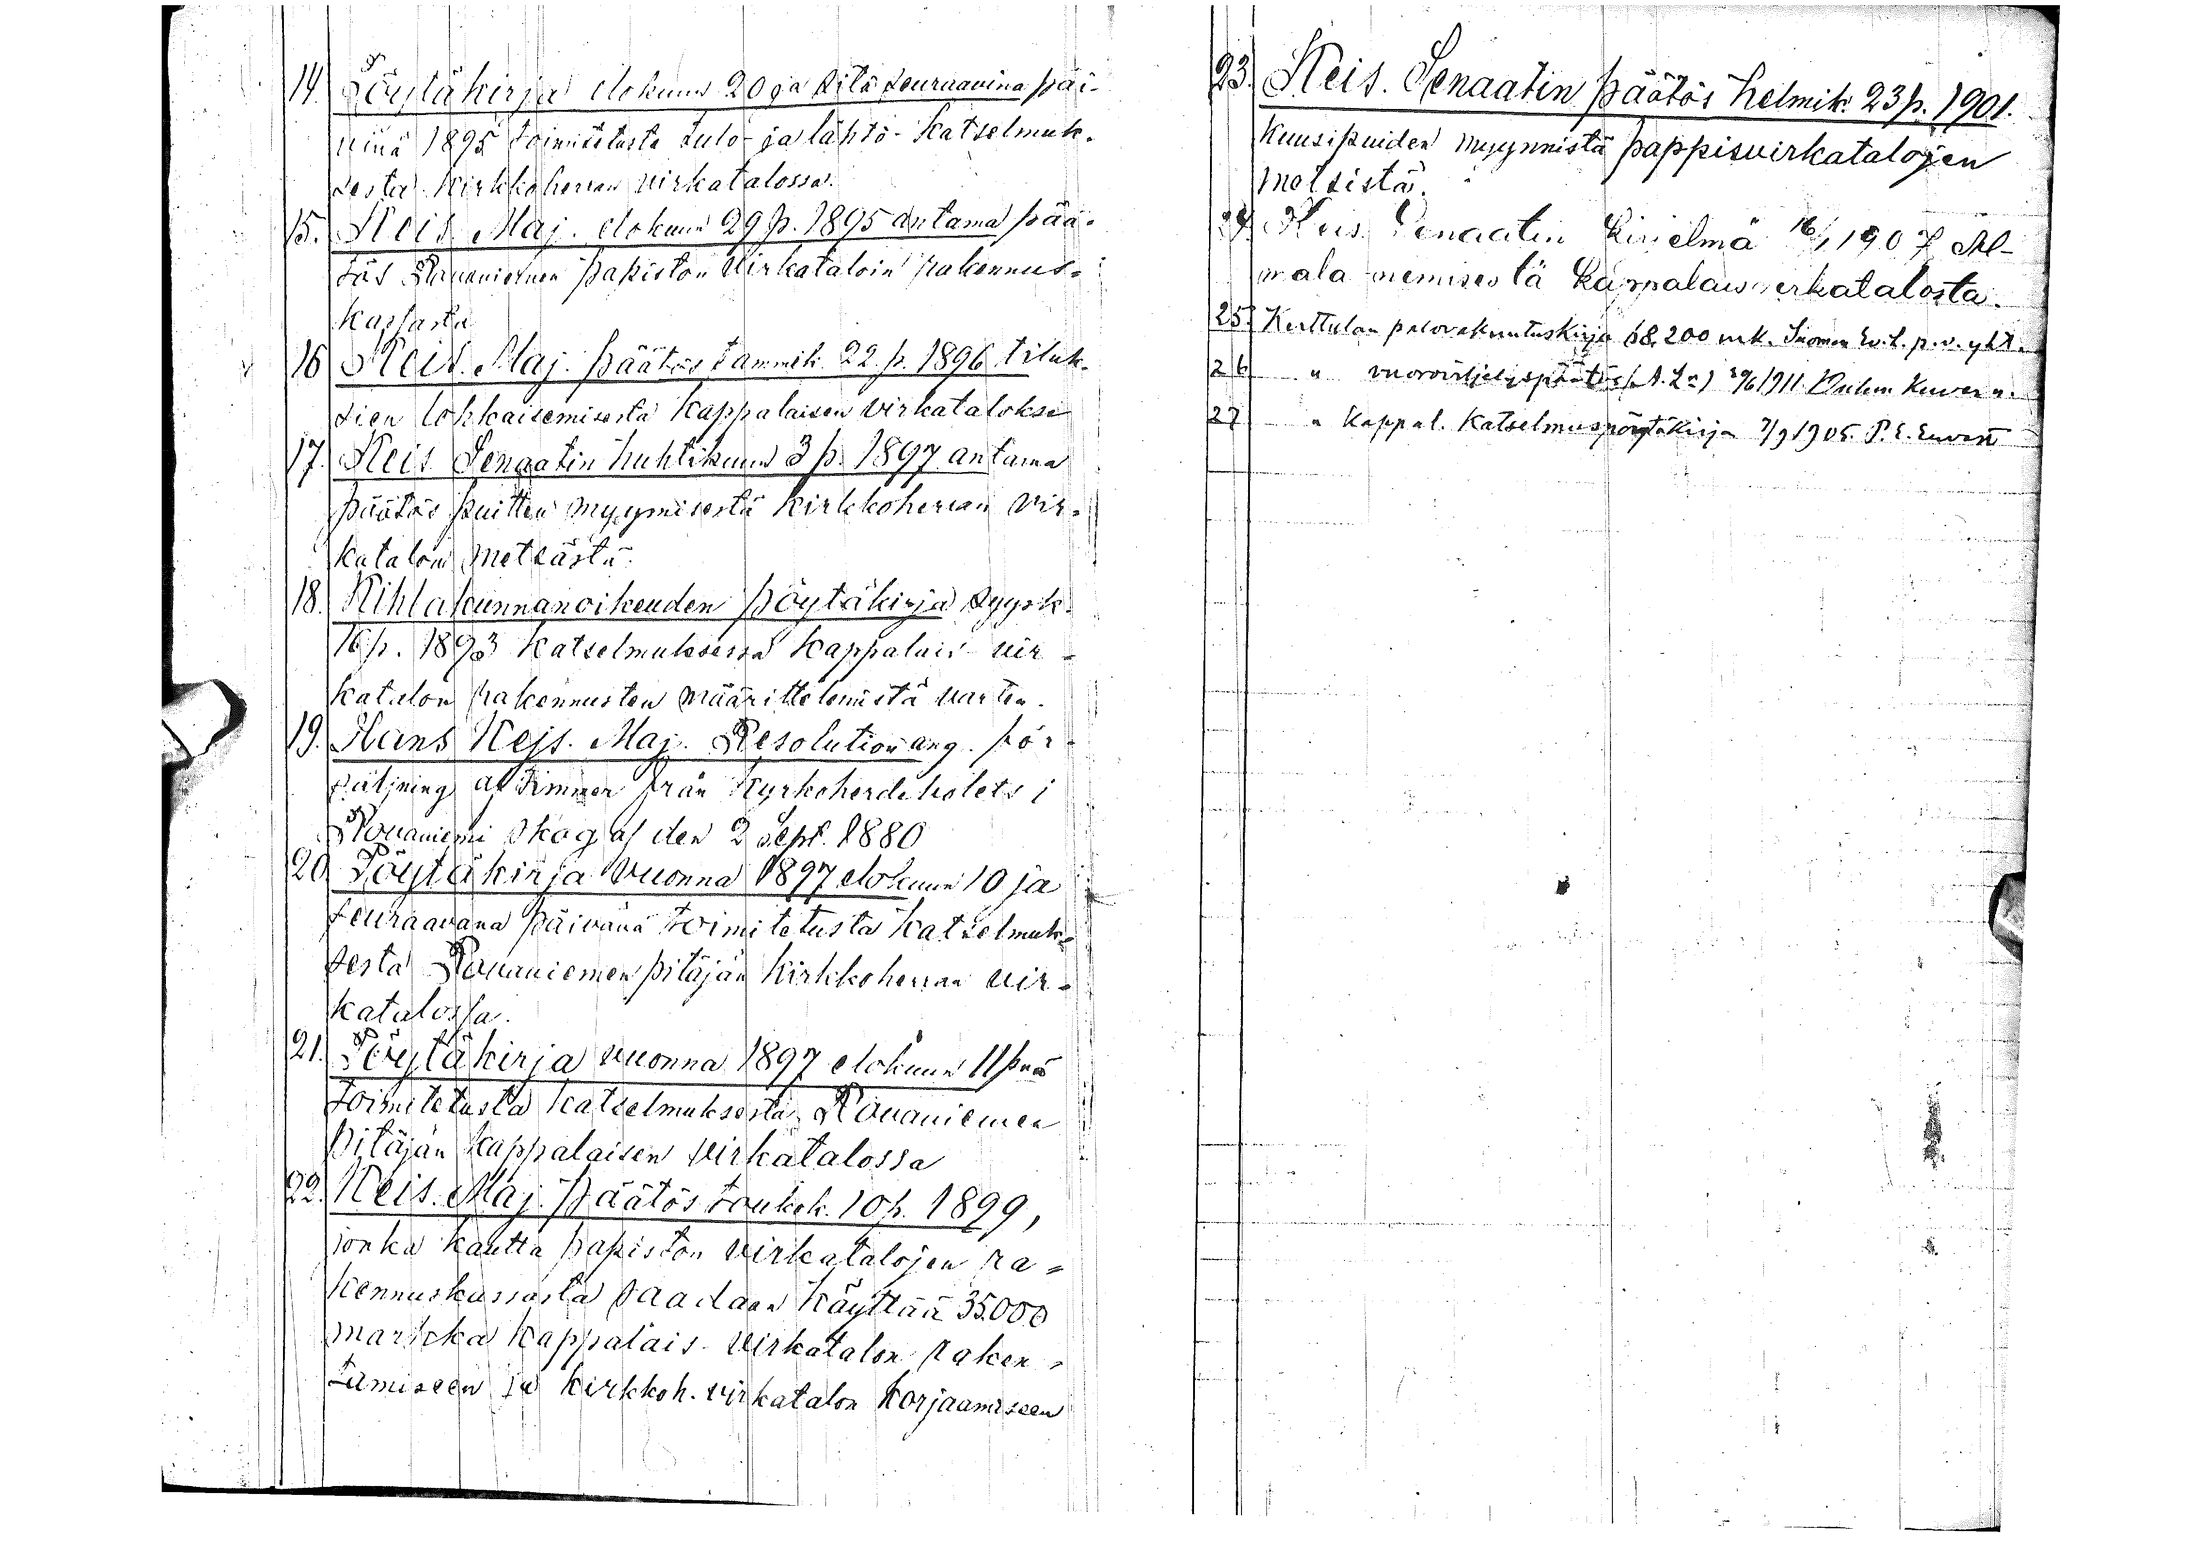 14. Pöytäkirja elokuun 20 ja sitä seuraavina päi-
vinä 1895 toimitetusta tulo- ja lähtö- katselmuk-
sesta Kirkkoherran virkatalossa.
15. Keis. Maj. elokuun 29 p. 1895 antama pää-
tös Rovaniemen papiston virkataloin rakennus-
kassasta
16 Keis. Maj. päätös tammik. 22. p. 1896 tiluk-
sien lohkaisemisesta Kappalaisen virkataloksi
17. Keis. Senaatin huhtikuun 3 p. 1897 antama
päätös puitten myymisestä Kirkkoherran vir-
katalon metsästä.
18. Kihlakunnanoikeuden pöytäkirja syysk.
16 p. 1893 Katselmuksessa Kappalais- vir-
katalon rakennusten määrittelemistä varten.
19. Hans Kejs. Maj. Resolution ang. för-
säljning af timmer från Kyrkoherdebolets i
Rovaniemi skog af den 2 Sept. 1880
20. Pöytäkirja vuonna 1897 elokuun 10 ja
seuraavana päivänä toimitetusta katselmuk-
sesta Rovaniemen pitäjän Kirkkoherran vir-
katalossa.
21. Pöytäkirja vuonna 1897 elokuun 11 pnä
toimitetusta Katselmuksesta Rovaniemen
pitäjän Kappalaisen virkatalossa
22. Keis. Maj. päätös toukok. 10 p. 1899,
jonka kautta papiston virkatalojen ra-
kennuskassasta saadaan käyttää 35.000
markka Kappalais- virkatalon raken-
tamiseen ja Kirkkoh. virkatalon korjaamiseen
23. Keis. Senaatin päätös helmik. 23 p. 1901.
kuusipuiden myynnistä pappisvirkatalojen
metsistä.
24. Keis. Senaatin Kirjelmä 16/1 1907
Kappalaisvirkatalosta.
25. Kerttulan palovakuutuskirja 68,200 mk. Suomen p.v. yht.
26 " vuoroviljelyspäätös 1911 Oulun Kuvern.
27 " Kappal. Katselmuspöytäkirja 7/9 1905.